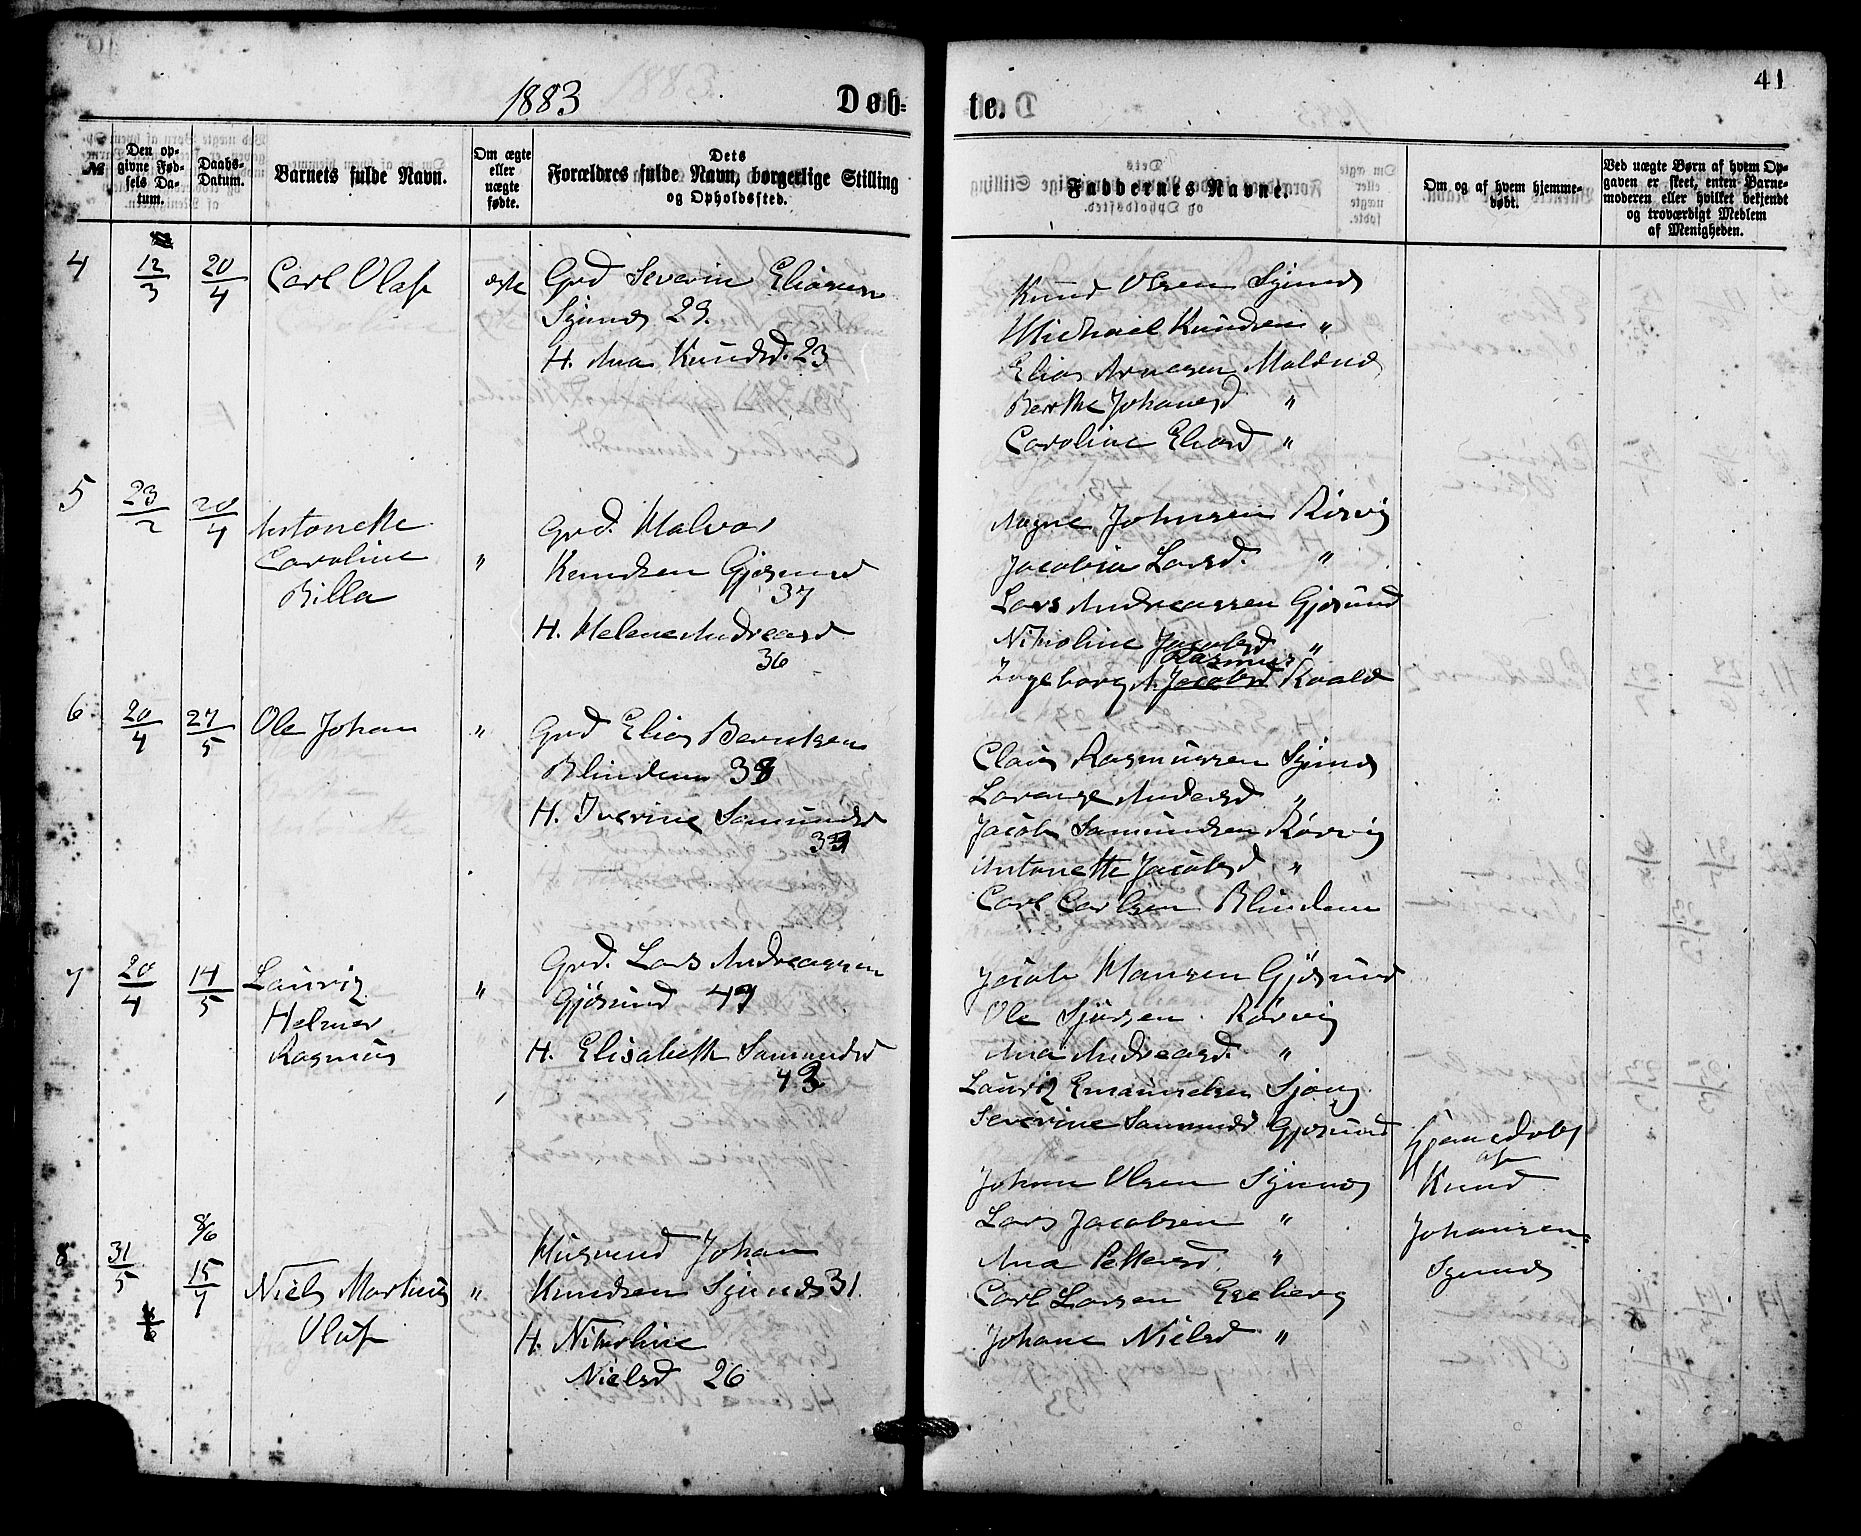 41
1883 Døb-te.
№
Den opgivne Fødsels Datum.
Daabs-Datum.
Barnets fulde Navn.
Om ægte eller uægte fødte.
Dets Forældres fulde Navn, borgerlige Stilling og Opholdssted.
Faddernes Navne.
Om og af hvem hjemmedøbt.
Ved uægte Børn af hvem Opgaven er skeet, enten Barnemoderen eller hvilket bekjendt og troværdigt Medlem af Menigheden.
4 12/3 20/4 Carl Olaf ægte Grd Severin Eliasen
Synnes 29.
H. Ana Knudsd. 23
Knud Olsen Synnes
Michael Knudsen "
Elias Arnesen Molnes
Berthe Johansd "
Caroline Eliasd "
5 23/2 20/4 Antonette
Caroline
Billa
" Grd. Halvor
Knudsen Gjøsund
37
H. Helene Andreasd
36
Magne Johnsen Rørvig
Jacobia Larsd. "
Lars Andreassen Gjøsund
Nikoline Jacobsd "
Rasmus
Ingeborg A. Jacobsd Roald
6 20/4 27/5 Ole Johan " Grd Elias Berntsen
Blindem 38
H. Iverine Samundsd
33
Claus Rasmussen Synnes
Lorense Andersd "
Jacob Samundsen Rørvig
Antonette Jacobsd "
Carl Carlsen Blindem
7 20/4 14/5 Lauriz
Helmer
Rasmus
" Grd. Lars Andreassen
Gjøsund 47
H. Elisabeth Samundsd
43
Jacob Hansen Gjøsund
Ole Sjursen Rørvig
Ana Andreasd. "
Lauriz Emanuelsen Sjong
Severine Samundsd Gjøsund
8 31/5 8/6
15/7 Niels Martinus
Oluf
" Husmand Johan
Knudsen Synnes 31.
H. Nikoline
Nielsd 26
Johan Olsen Synnes
Lars Jacobsen "
Ana Pettersd. "
Carl Larsen Eseberg
Johane Nielsd "
Hjemedøbt
af
Knud
Johansen
Synnes